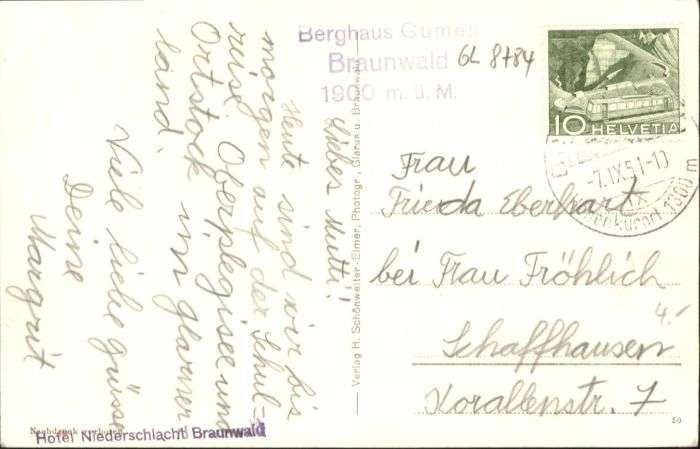 Berghaus Gumen
Braunwald
1900 m. ü. M.
GL 8784
10 HELVETIA
-7.IX.51-10
1300 m
Liebes Mutti!
Heute sind wir bis
morgen auf der Schul-
reise. Oberblegisee und
Ortstock im glarner
land.
Viele liebe Grüsse
Deine
Margrit
Verlag H. Schönwetter-Elmer, Photogr., Glarus u. Braunwald
Frau
Frieda Eberhart
bei Frau Fröhlich
4.
Schaffhausen
Korallenstr. 7
Nachdruck verboten
Hotel Niederschlacht Braunwald
50